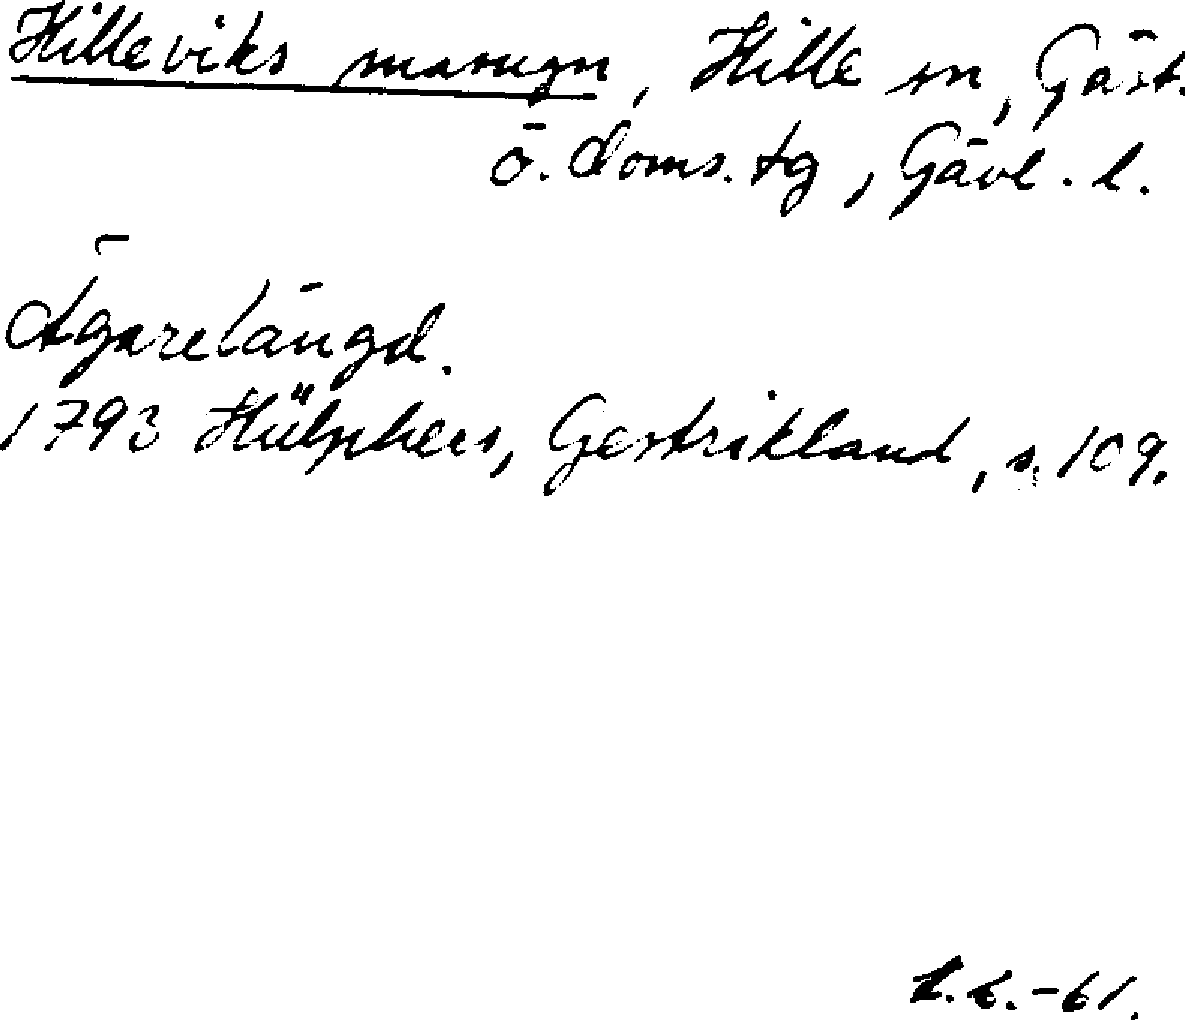 Hilleviks masugn, Hille sn, Gäst.
ö. doms.tg, Gävl. l.
Ägarelängd.
1793 Hülphers, Gestrikland, s. 109.
L.L.-61.